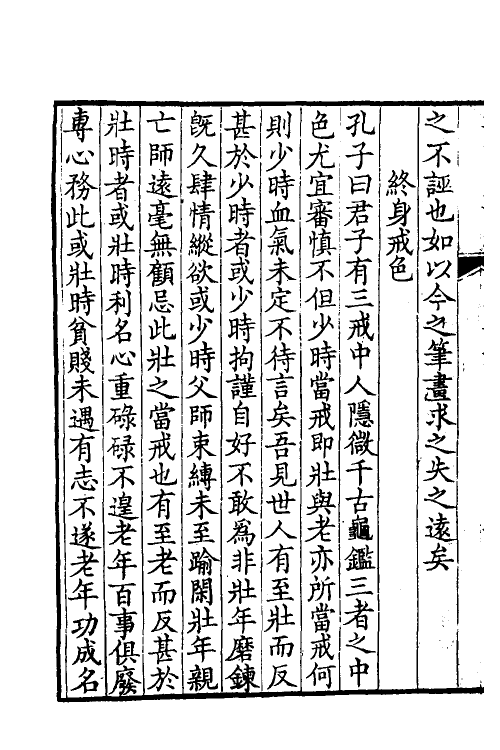 之不誣也如以今之筆畫求之失之遠矣
終身戒色
孔子曰君子有三戒中人隱微千古龜鑑三者之中
色尤宜審慎不但少時當戒即壯與老亦所當戒何
則少時血氣未定不待言矣吾見世人有至壯而反
甚於少時者或少時拘謹自好不敢爲非壯年磨鍊
旣久肆情縱欲或少時父師束縛未至踰閑壯年親
亡師遠毫無顧忌此壯之當戒也有至老而反甚於
壯時者或壯時利名心重碌碌不遑老年百事俱廢
專心務此或壯時貧賤未遇有志不遂老年功成名